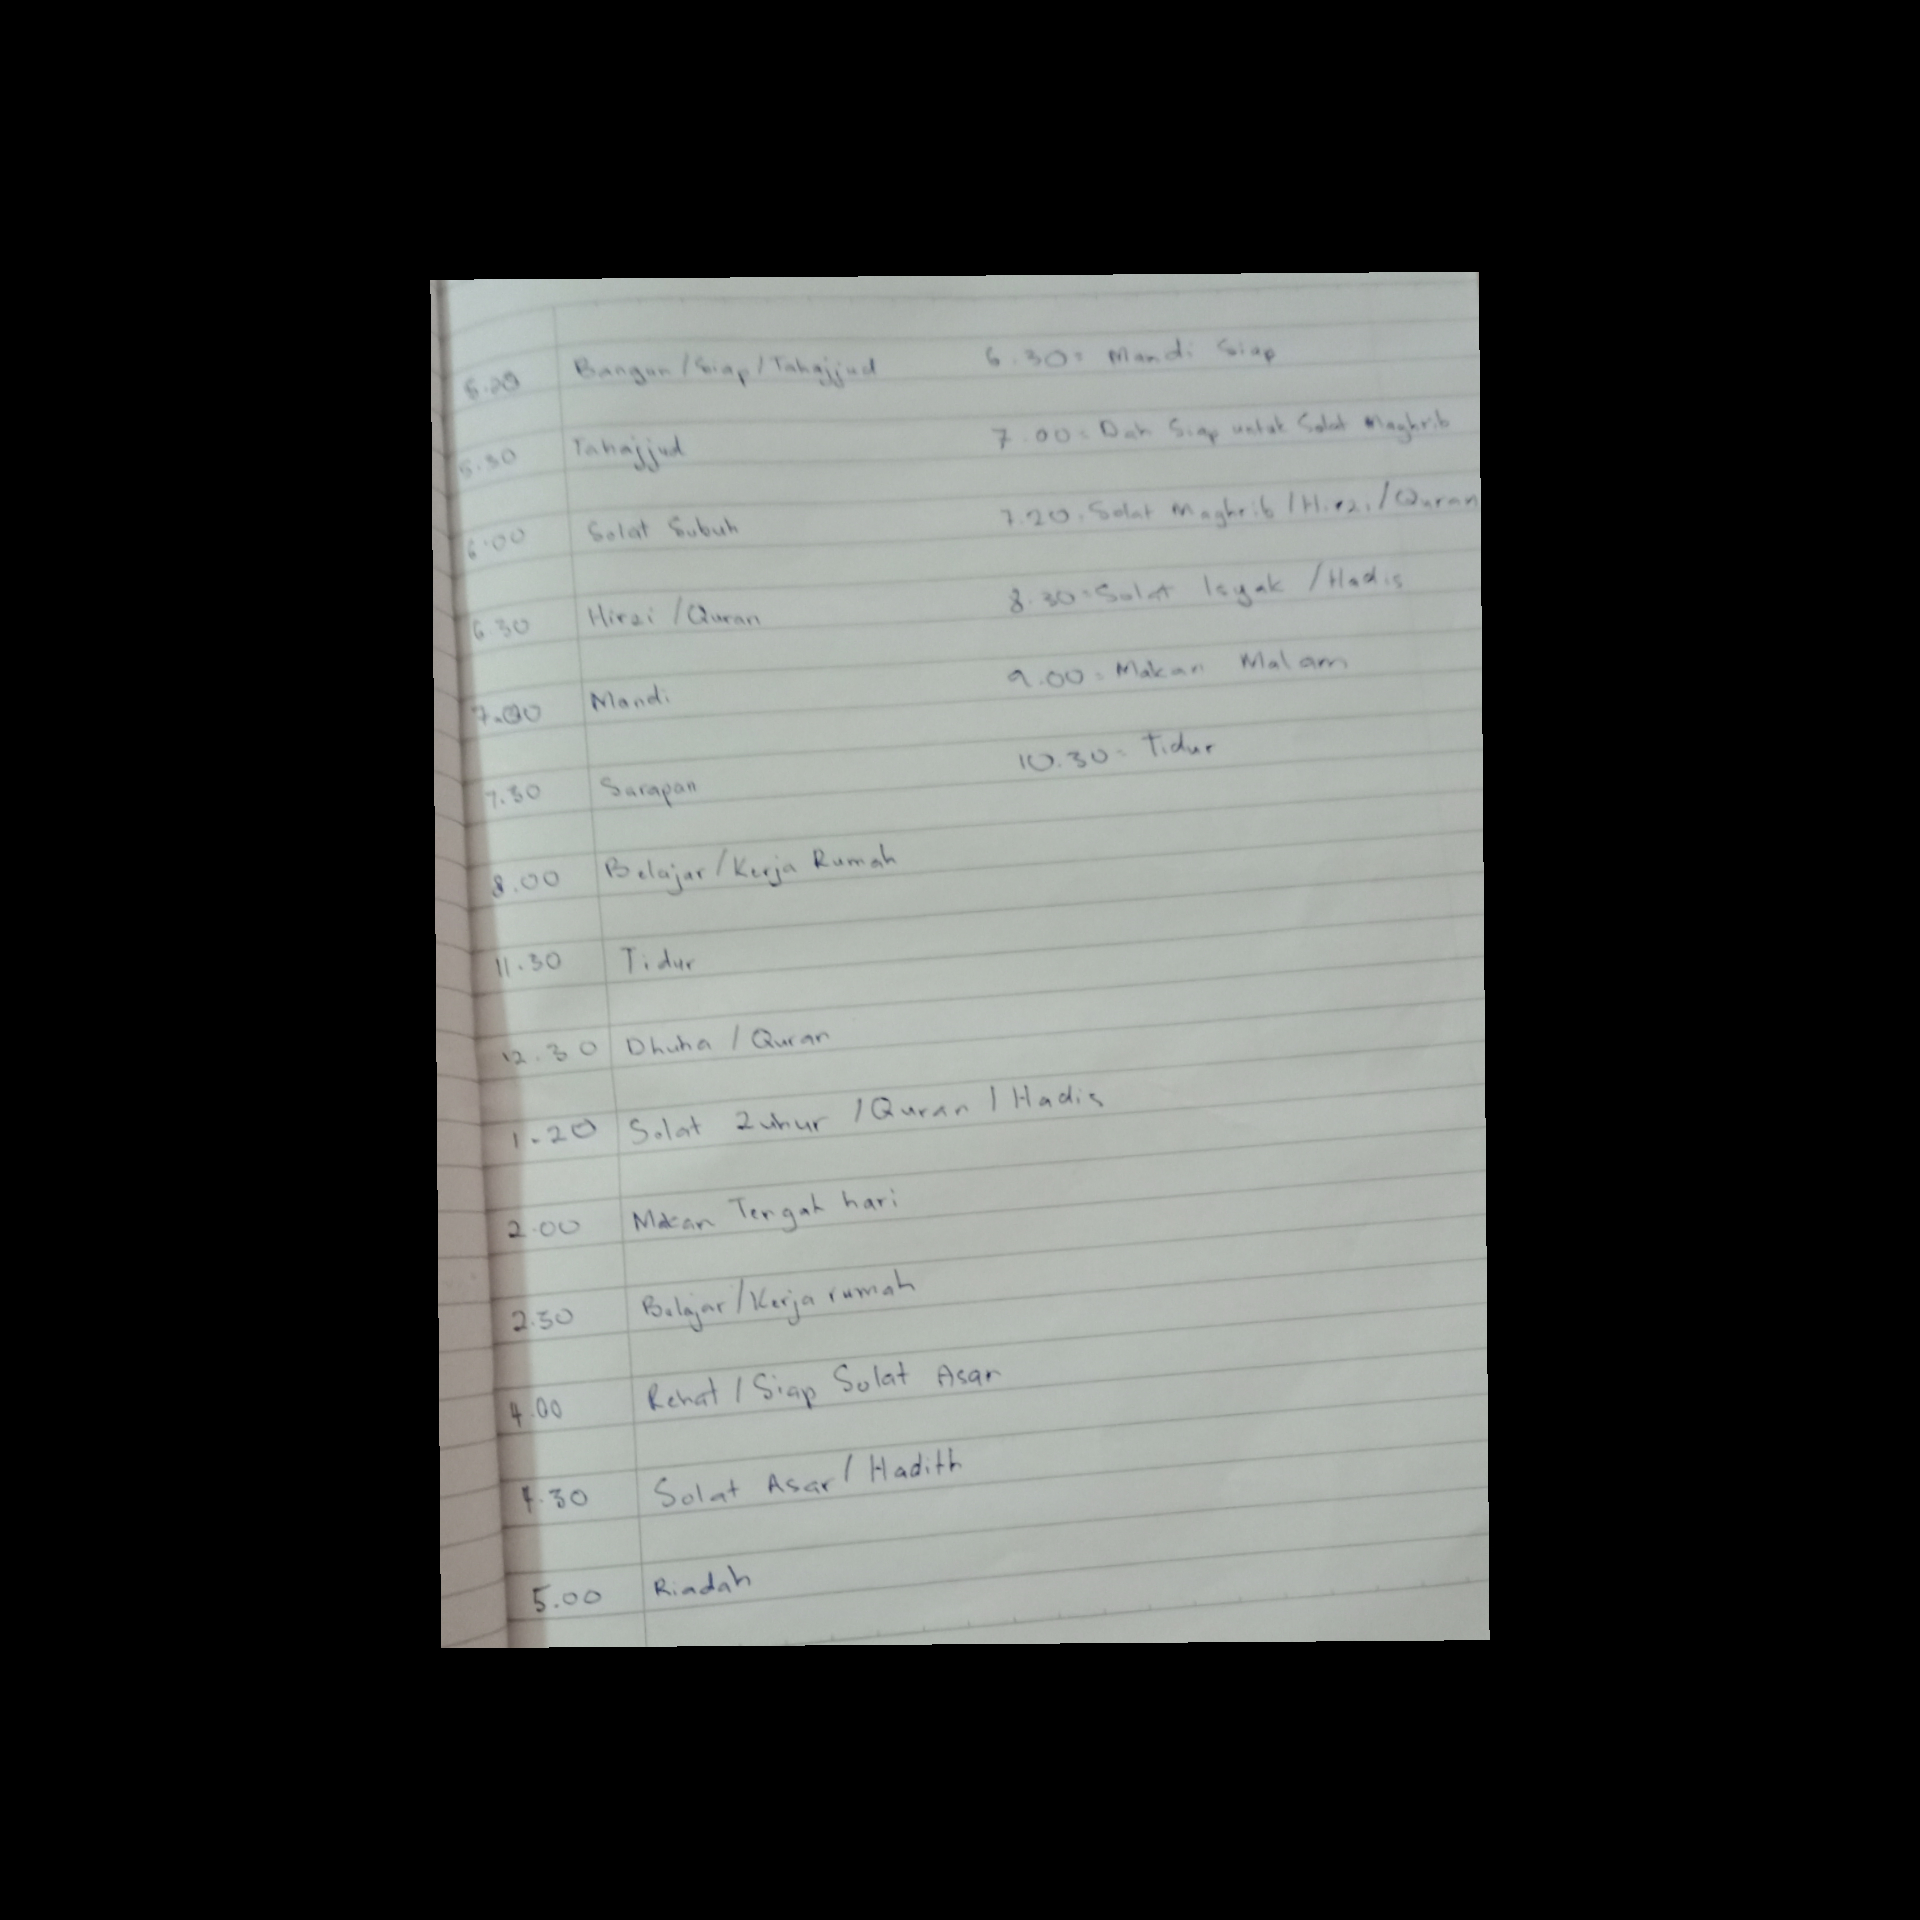 5.20 Bangun/Siap/Tahajjud
5.30 Tahajjud
6.00 Solat Subuh
6.30 Hirzi /Quran
7.00 Mandi
7.30 Sarapan
8.00 Belajar/Kerja Rumah
11.30 Tidur
12.30 Dhuha / Quran
1.20 Solat Zuhur /Quran / Hadis
2.00 Makan Tengah hari
2.30 Belajar/Kerja rumah
4.00 Rehat / Siap Solat Asar
4.30 Solat Asar / Hadith
5.00 Riadah
6.30= Mandi Siap
7.00= Dah Siap untuk Solat Maghrib
7.20= Solat Maghrib /Hirzi /Quran
8.30= Solat Isyak /Hadis
9.00= Makan Malam
10.30= Tidur